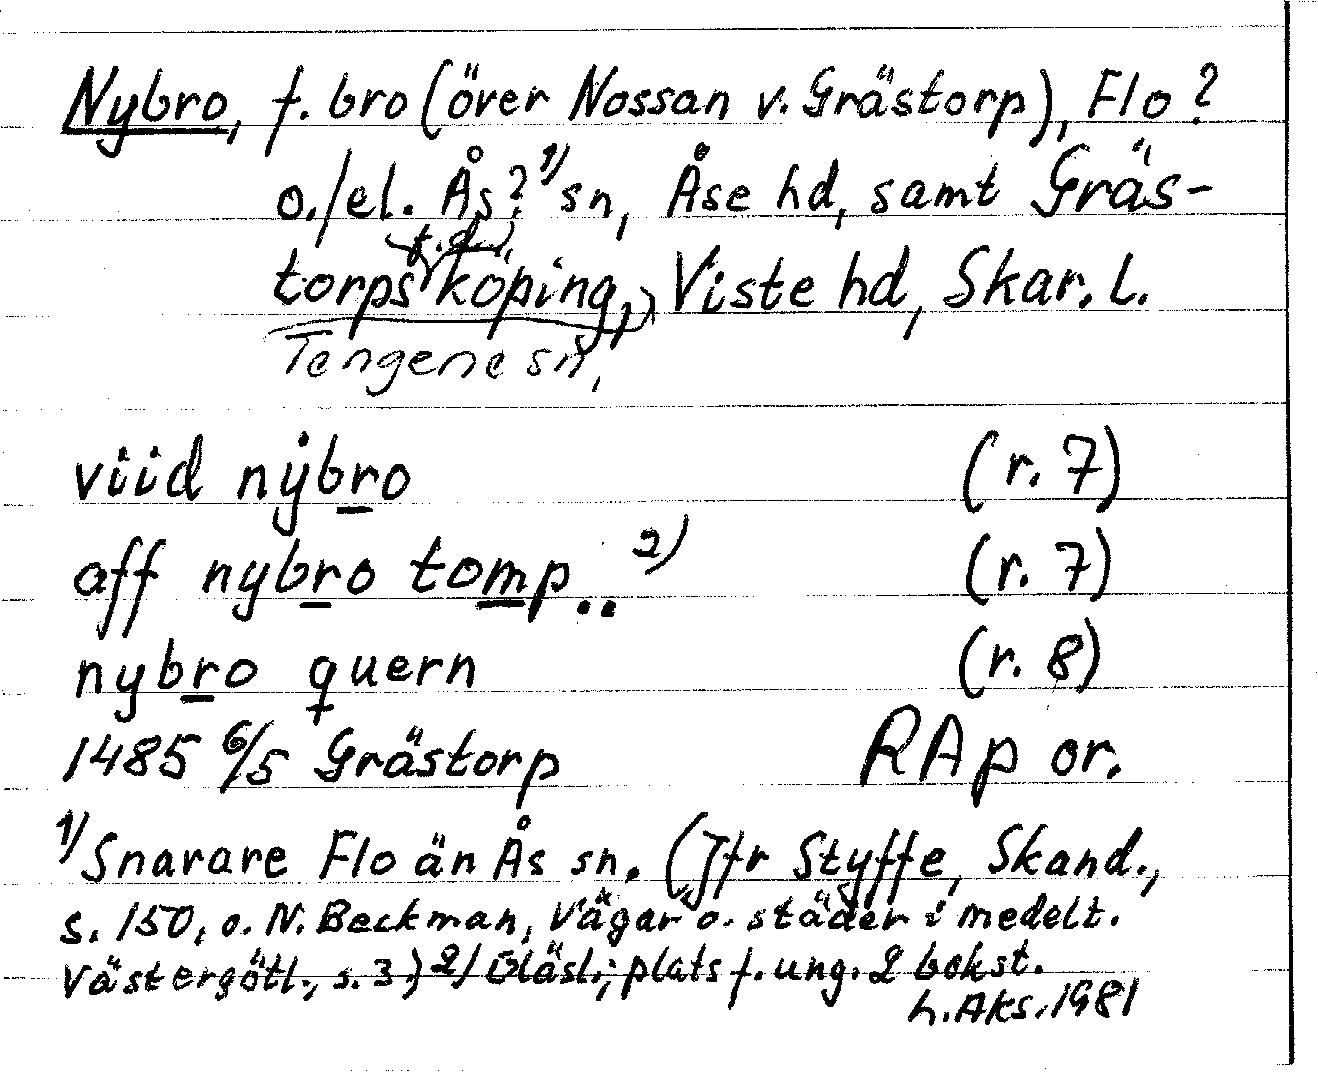 Nybro, f. bro (över Nossan v. Grästorp), Flo?
o./el. Ås?1) sn, Åse hd, samt Gräs-
(f.d.)
torps köping, Viste hd, Skar. l.
Tengene sn,
viid nÿbro (r. 7)
aff nybro tomp..2) (r. 7)
nybro quern (r. 8)
1485 6/5 Grästorp RAp or.
1) Snarare Flo än Ås sn. (Jfr Styffe, Skand.,
s. 150, o. N. Beckman, Vägar o. städer i medelt.
Västergötl., s. 3.) 2) Oläsl.; plats f. ung. 2 bokst.
h.Aks.1981